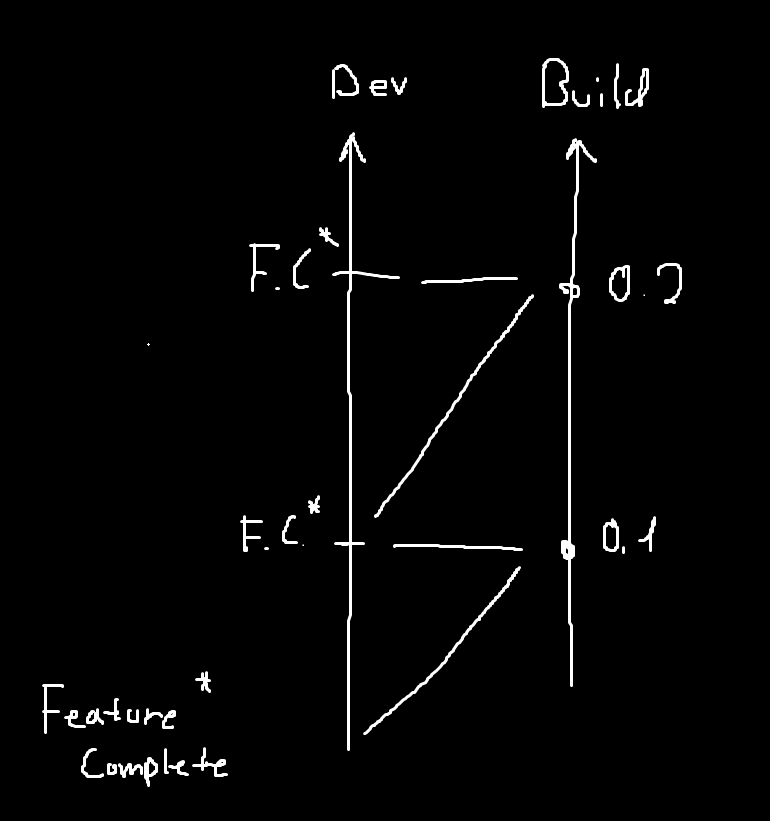 Dev Build
F.C* 0.2
F.C.* 0.1
Feature*
Complete